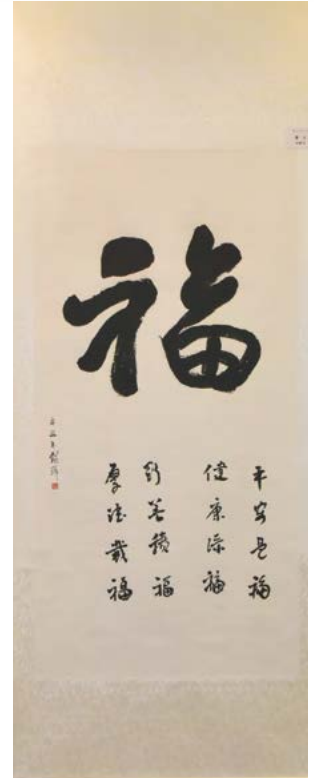 福
平安是福
健康添福
行善積福
厚德載福